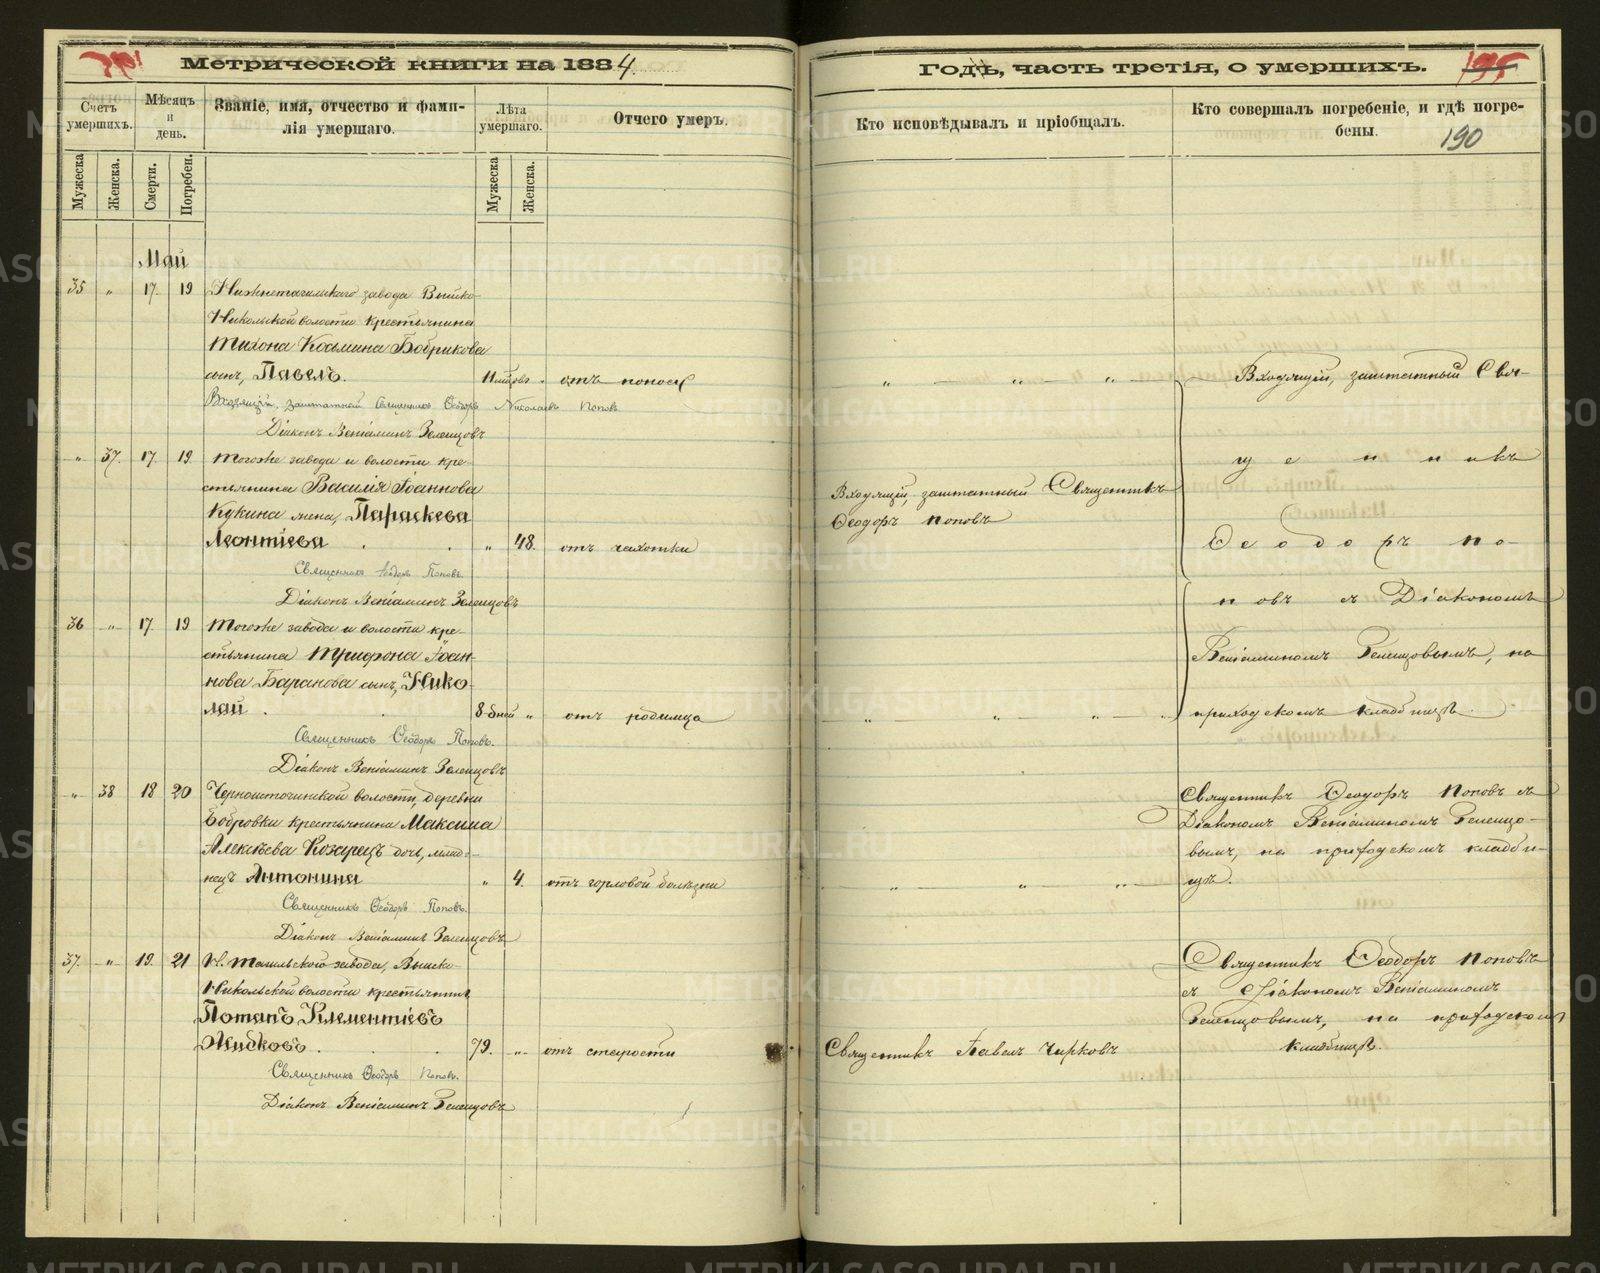 195
Метрической книги на 1884.
Счетъ умершихъ.
Мѣсяцъ и день.
Званіе, имя, отчество и фами-
лія умершаго.
Лѣта умершаго.
Отчего умеръ.
Мужеска
Женска.
Смерти.
Погребен.
Мужеска
Женска.
Май
35 " 17. 19 Нижнетагильскаго завода Выйско-
Никольской волости крестьянина
Тихона Козмина Бобрикова
сынъ, Павелъ. 11 " отъ поноса
Входящій, заштатный Священникъ Ѳеодоръ Николаевъ Поповъ
Діаконъ Веніаминъ Зеленцовъ
" 37. 17. 19. тогоже завода и волости кре-
стьянина Василія Іоаннова
Кукина жена, Параскева
Леонтіева " 48. отъ чахотки
Священникъ Ѳеодоръ Поповъ.
Діаконъ Веніаминъ Зеленцовъ
36 " 17. 19 тогоже завода и волости кре-
стьянина Трифона Іоан-
нова Баранова сынъ, Нико-
лай 8 дней " отъ родимца
Священникъ Ѳеодоръ Поповъ.
Діаконъ Веніаминъ Зеленцовъ
" 38 18 20 Черноисточинской волости, деревни
Бобровки крестьянина Максима
Алексѣева Козарецъ дочь, младе-
нецъ Антонина " 4. отъ горловой болѣзни
Священникъ Ѳеодоръ Поповъ.
Діаконъ Веніаминъ Зеленцовъ
37. " 19. 21 Н. Тагильскаго завода, Выйско-
Никольской волости крестьянинъ
Потапъ Климентіевъ
Жибковъ 79. " отъ старости
Священникъ Ѳеодоръ Поповъ.
Діаконъ Веніаминъ Зеленцовъ
Годъ, часть третія, о умершихъ.
195
Кто исповѣдывалъ и пріобщалъ.
Кто совершалъ погребеніе, и гдѣ погре-
бены.
190
" " "
Входящій, заштатный Священникъ
Ѳеодоръ Поповъ
" " " "
" " "
Священникъ Павелъ Чирковъ
Входящій, заштатный Свя-
щенникъ
Ѳеодоръ По-
повъ съ Діакономъ
Веніаминомъ Зеленцовымъ, на
приходскомъ кладбищѣ.
Священникъ Ѳеодоръ Поповъ съ
Діакономъ Веніаминомъ Зеленцо-
вымъ, на приходскомъ кладби-
щѣ.
Священникъ Ѳеодоръ Поповъ
съ Діакономъ Веніаминомъ
Зеленцовымъ, на приходскомъ
кладбищѣ.
METRIKI.GASO-URAL.RU